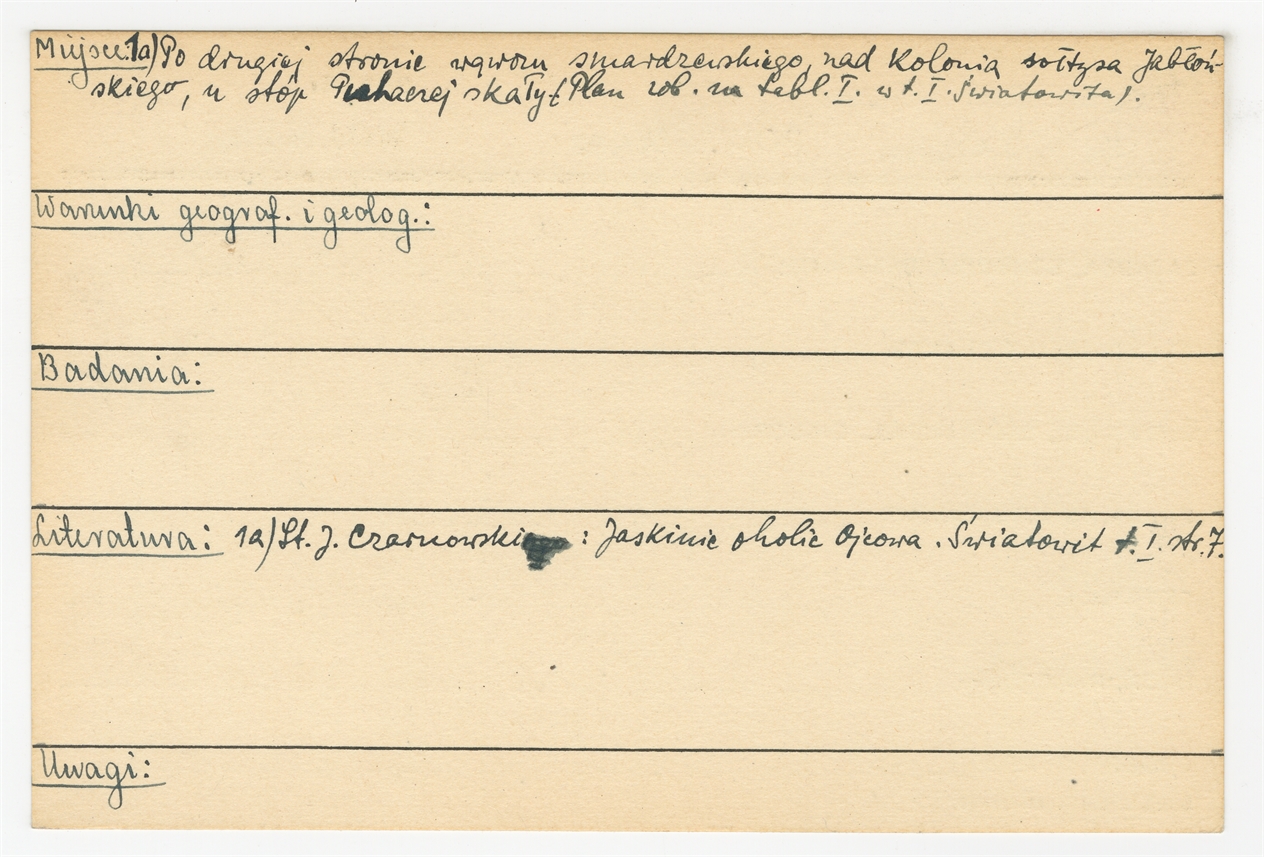 Miejsce: 1a) Po drugiej stronie wąwozu smardzewskiego, nad kolonią sołtysa Jabłoń-
skiego, u stóp Puchaczej skały (Plan zob. na tabl. I. w t. I. Światowita).
Warunki geograf. i geolog.:
Badania:
Literatura: 1a) St. J. Czarnowski : Jaskinie okolic Ojcowa. Światowit t. I. str. 7.
Uwagi: